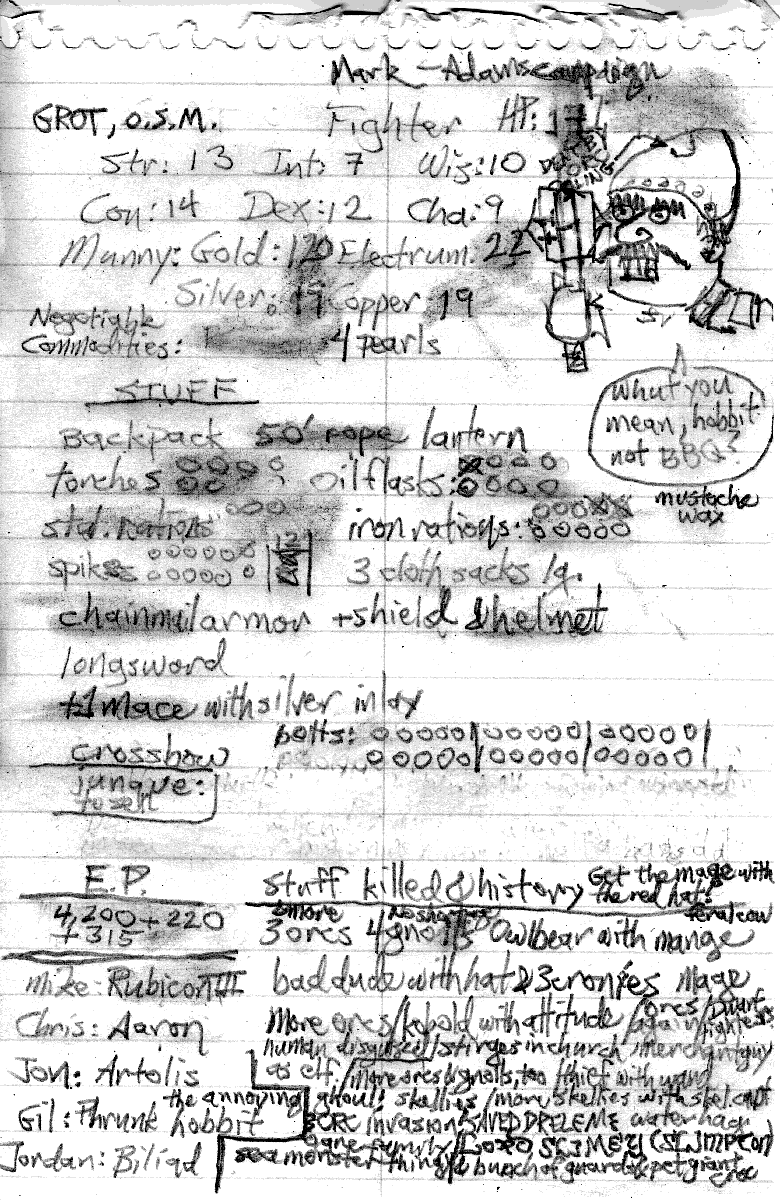 Mark - Adams campaign
GROT, O.S.M. Fighter HP:
Str: 13 Int: 7 Wis: 10
Con: 14 Dex: 12 Cha: 9
Munny: Gold: 120 Electrum: 22
Silver: 19 Copper 19
Negotiable
Commodities: 4 pearls
whut you
mean, hobbit
not BBQ?
STUFF
Backpack 50' rope lantern
torches oil flasks:
mustache
wax
std. rations iron rations:
spikes 3 cloth sacks lg.
chainmail armor + shield & helmet
longsword
+1 Mace with silver inlay
crossbow bolts:
junque:
to sell
E.P. Stuff killed & history
Get the mage with
the red hat!
4,200 + 220
+ 315
3 orcs 4 gnolls Owlbear with mange
feral cow
Mike: Rubicon III bad dude with hat & 3 cronies Mage
Chris: Aaron More orcs/kobold with attitude
human disguised / stirges in church / merchant guy
Jon: Artolis as elf / more orcs & gnolls, too / thief with wand
the annoying ghoul / skellies / more skellies with
Gil: Thrunk hobbit ORC invasion / SAVED
Jordan: Biliad sea monster thing / a bunch of guards & pet giant croc